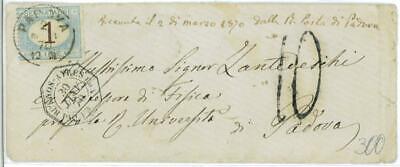 Ricevuta il 2 di marzo 1870 dalla R. Posta di Padova
PADOVA
1
10
Illustrissimo Signor Zantedeschi
Professore di Fisica
presso la R. Università
di Padova
300